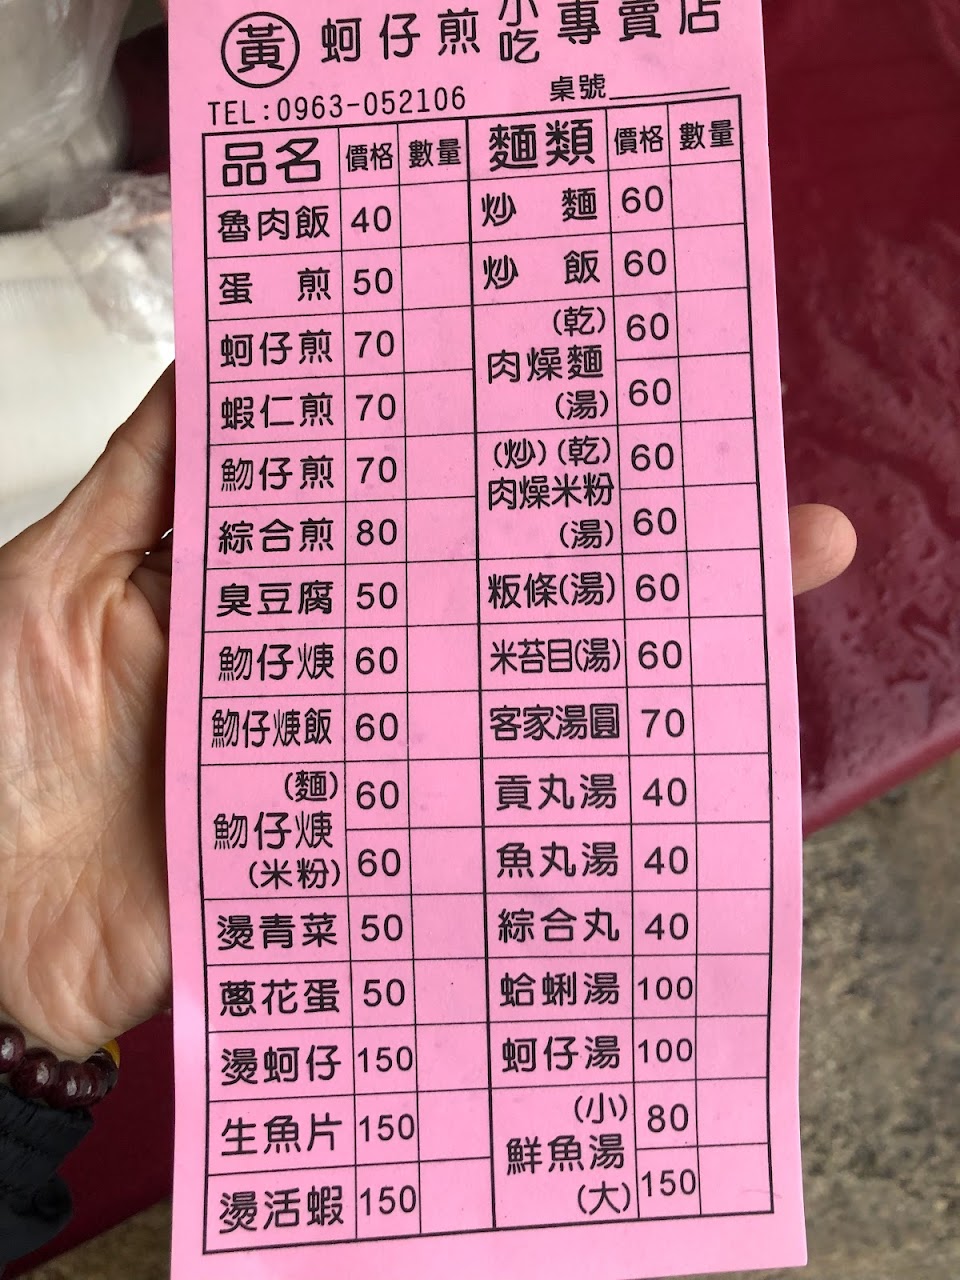 黃 蚵仔煎 小吃 專賣店
TEL:0963-052106 桌號
品名 價格 數量 麵類 價格 數量
魯肉飯 40 炒麵 60
蛋煎 50 炒飯 60
蚵仔煎 70 肉燥麵 (乾) 60
蝦仁煎 70 (湯) 60
魩仔煎 70 肉燥米粉 (炒)(乾) 60
綜合煎 80 (湯) 60
臭豆腐 50 粄條(湯) 60
魩仔焿 60 米苔目(湯) 60
魩仔焿飯 60 客家湯圓 70
魩仔焿 (麵) 60 貢丸湯 40
(米粉) 60 魚丸湯 40
燙青菜 50 綜合丸 40
蔥花蛋 50 蛤蜊湯 100
燙蚵仔 150 蚵仔湯 100
生魚片 150 鮮魚湯 (小) 80
燙活蝦 150 (大) 150